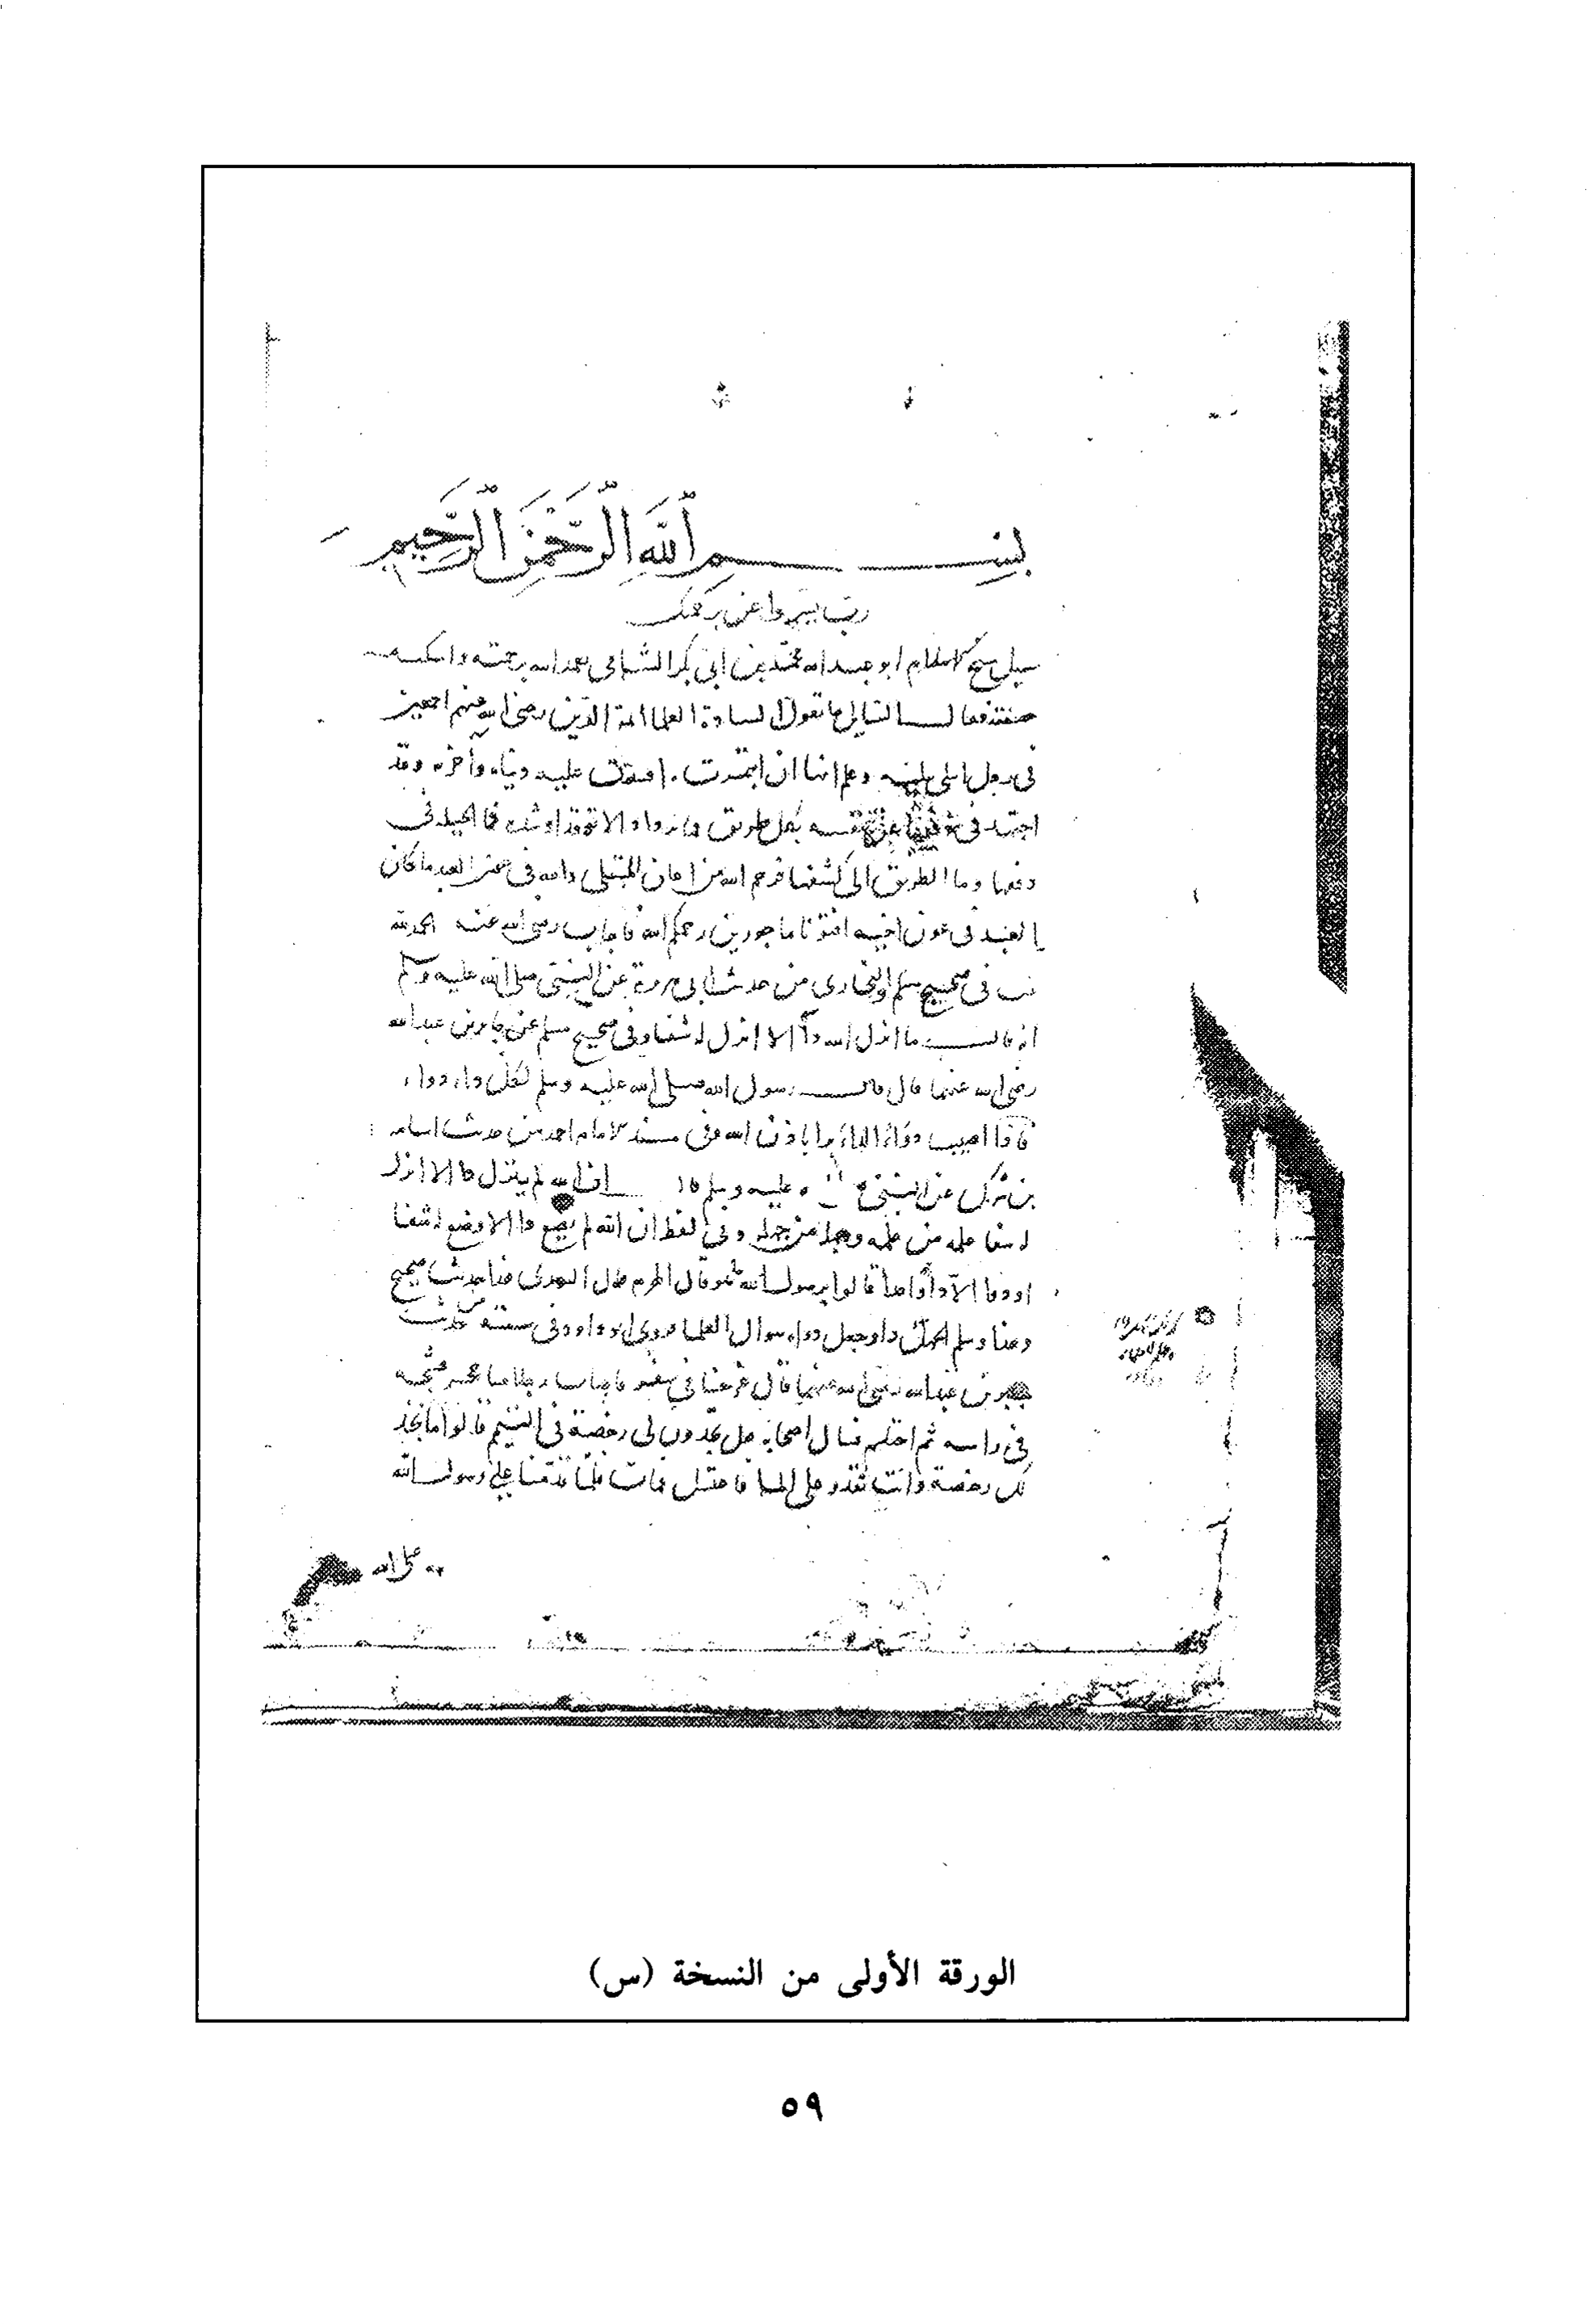 بسم الله الرحمن الرحيم
رب يسر واعن برحمتك
سيل شيخ الاسلام ابو عبد الله محمد بن ابى بكر الشامى تغمده الله برحمته واسكنه
جنته فقال السايل ما تقول السادة العلما ايمة الدين رضى الله عنهم اجمعين
فى رجل ابتلى ببلية وعلم انها ان استمرت افسدت عليه دنياه وآخرته وقد
اجتهد فى دفعها عن نفسه بكل طريق وما تزداد الا توقدا وشدة فما الحيلة فى
دفعها وما الطريق الى كشفها فرحم الله من اعان المبتلى والله فى عون العبد ما كان
العبد فى عون اخيه افتونا ماجورين رحمكم الله فاجاب رضى الله عنه الحمد لله
ثبت فى صحيح مسلم والبخارى من حديث ابى هريرة عن النبى صلى الله عليه وسلم
انه قال ما انزل الله داء الا انزل له شفا وفى صحيح مسلم عن جابر بن عبد الله
رضى الله عنهما قال قال رسول الله صلى الله عليه وسلم لكل داء دواء
فاذا اصيب دواء الداء برا باذن الله وفى مسند الامام احمد من حديث اسامه
بن شريك عن النبى عليه وسلم قال ان الله لم ينزل دا الا انزل
له شفا علمه من علمه وجهله من جهله وفى لفظ ان الله لم يضع دا الا وضع له شفا
او دوا الا داء واحدا قالوا يرسول الله ما هو قال الهرم قال الترمذى هذا حديث صحيح
وسلم الجهل دا وجعل دواه سوال العلما فروى ابو داود فى سننه من حديث
جابر بن عبد الله رضى الله عنهما قال خرجنا فى سفر فاصاب رجلا منا حجر فشجه
فى راسه ثم احتلم فسال اصحابه هل تجدون لى رخصة فى التيمم قالوا ما نجد
لك رخصة وانت تقدر على الما فاغتسل فمات فلما قدمنا على رسول الله
صلى الله
الورقة الأولى من النسخة (س)
٥٩